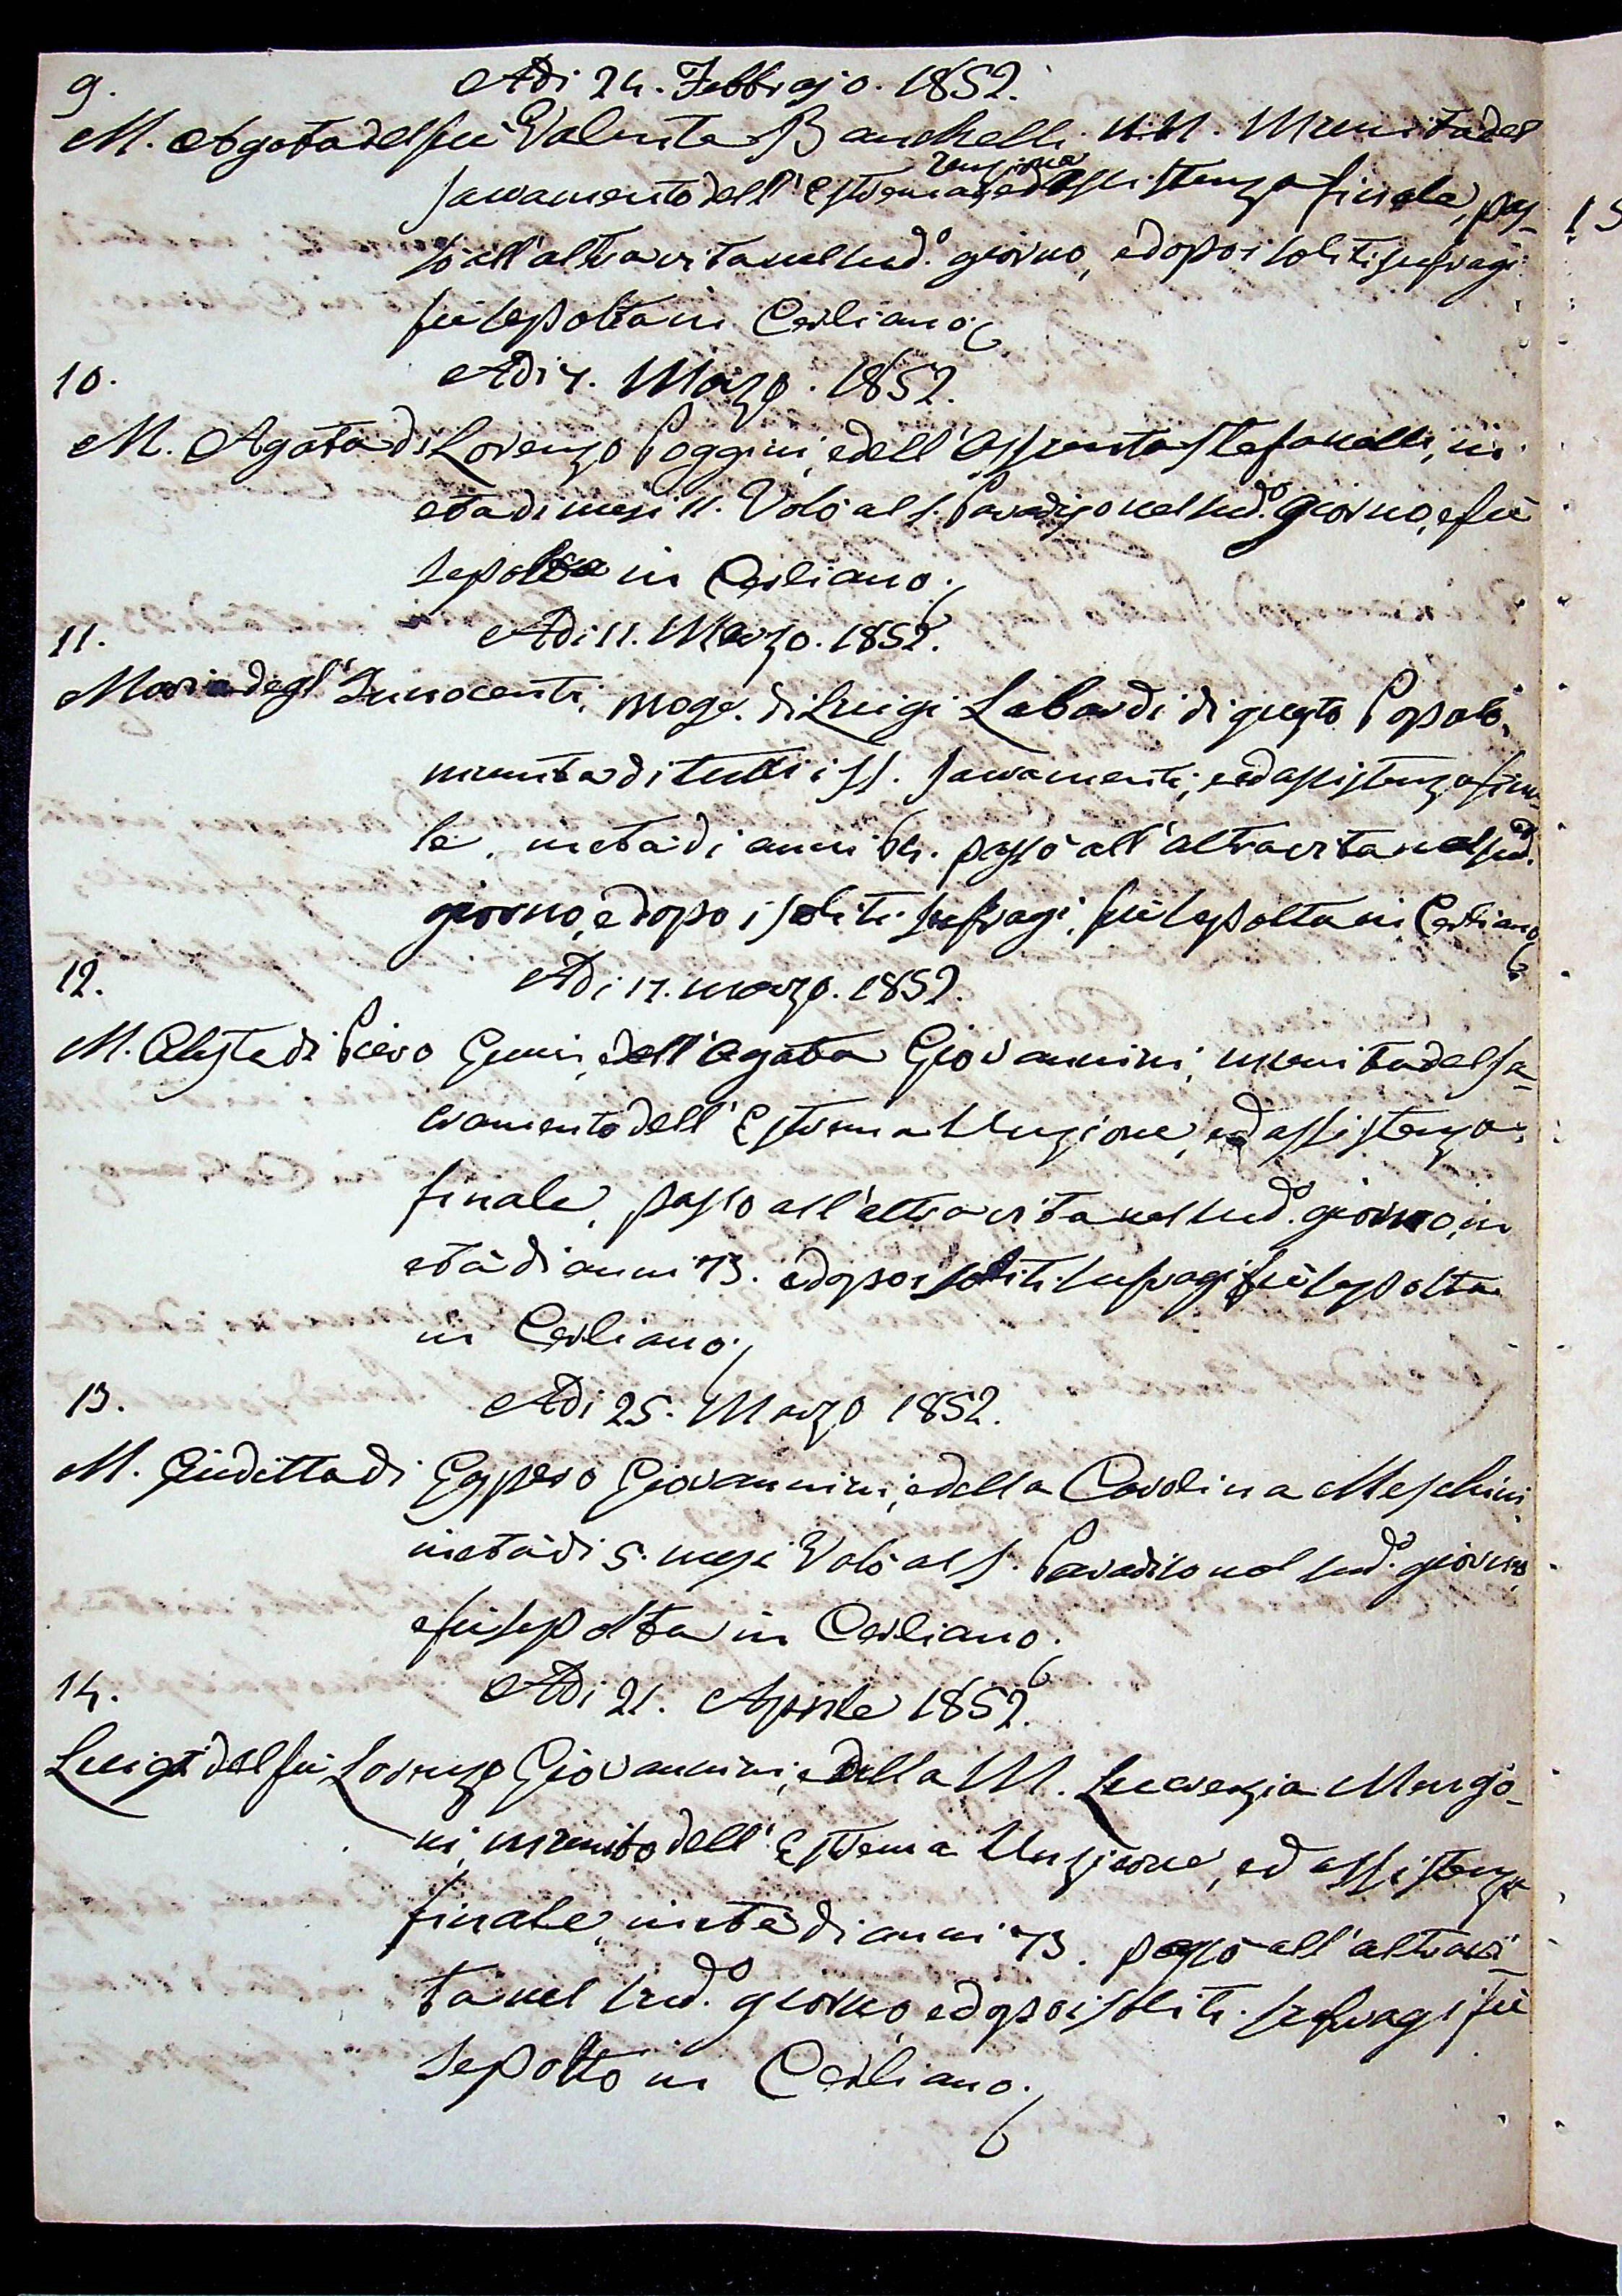 9. Adi 24. Febbrajo. 1852.
M. Agata del fù Valente Banchelli. N.N. Munita del
sacramento dell'Estrema unzione ed assistenza finale, pas-
sò all'altra vita nel sud.º giorno, e dopo i soliti sufragi
fù sepolta in Cerliano.
10. Adi 7. Marzo. 1852.
M. Agata di Lorenzo Poggini, e dell'Assunta Stefanelli, in
età di mesi 11. Volò al S. Paradiso nel sud.º giorno, e fù
sepolta in Cerliano.
11. Adi 11. Marzo. 1852.
Maria degl'Innocenti, moge. di Luigi Labardi di questo Popolo,
munita di tutti i SS. Sacramenti, ed assistenza fina-
le, in età di anni 64. passò all'altra vita nel sud.º
giorno, e dopo i soliti sufragi, fù sepolta in Cerliano
12. Adi 17. marzo. 1852.
M. di Piero dell'Agata Giovannini, munita del sa-
cramento dell'Estrema Unzione, ed assistenza
finale, passò all'altra vita nel sud.º giorno, in
età di anni 73. e dopo i soliti sufragi fù sepolta
in Cerliano.
13. Adi 25. Marzo 1852.
M. Giuditta di Gaspero Giovannini, e della Carolina Meschini
in età di 5. mesi Volò al S. Paradiso nel sud.º giorno,
e fù sepolta in Cerliano.
14. Adi 21. Aprile 1852.
Luigi del fù Lorenzo Giovannini, e della M. Lucrezia Margo-
ni, munito dell'Estrema Unzione, ed assistenza
finale, in età di anni 73. passò all'altra vi-
ta nel sud.º giorno e dopo i soliti sufragi fù
sepolto in Cerliano.